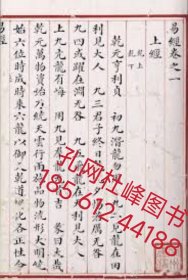 易經卷之一
上經
乾上
乾下
乾元亨利貞 初九潛龍勿用 九二見龍在田
利見大人 九三君子終日乾乾夕惕若厲无咎
九四或躍在淵无咎 九五飛龍在天利見大人
上九亢龍有悔 用九見羣龍无首吉 彖曰大哉
乾元萬物資始乃統天雲行雨施品物流形大明終
始六位時成時乘六龍以御天乾道變化各正性命
易經
孔网杜峰图书
18561244188